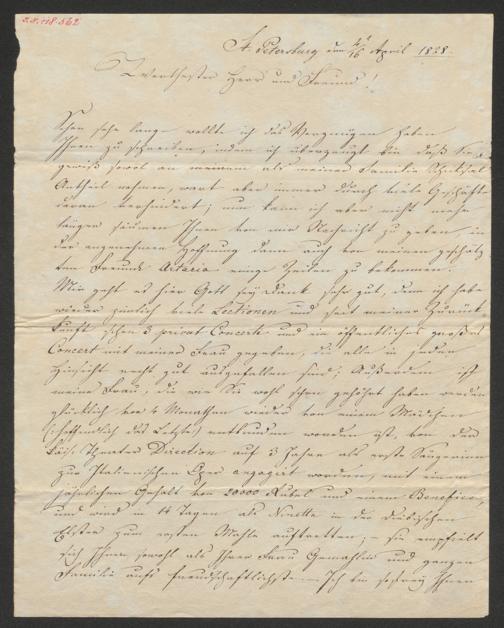 St. Petersburg den 4/16 April 1828.
Werthester Herr und Freund!
Schon sehr lange wollte ich das Vergnügen haben
Ihnen zu schreiben, indem ich überzeugt bin daß Sie
gewiß sowol an meinem als meiner Familie Schicksal
Antheil nehmen, ward aber immer durch viele Geschäfte
daran verhindert; nun kann ich aber nicht mehr
länger säumen Ihnen von mir Nachricht zu geben, in
der angenehmen Hoffnung dann auch von meinem geschätz
ten Freunde Artaria einige Zeilen zu bekommen.
Mir geht es hier Gott sey Dank sehr gut, denn ich habe
wieder ziemlich viele Lectionen und seit meiner Zurück
kunft schon 3 privat Concerte und ein öffentliches großes
Concert mit meiner Frau gegeben, die alle in jeder
Hinsicht recht gut ausgefallen sind; Außerdem ist
meine Frau, die wie Sie wohl schon gehört haben werden
glücklich vor 4 Monathen wieder von einem Mädchen
(hoffendlich das Letzte) entbunden worden ist, von der
Kais. Theater Direction auf 3 Jahre als erste Sängerinn
zur Italienischen Oper engagirt worden, mit einem
jährlichen Gehalt von 20000 Rubel und einem Benefice,
und wird in 14 Tagen als Ninette in der Diebischen
Elster zum ersten Mahle auftretten; – sie empfielt
sich Ihnen sowohl als Ihrer Frau Gemahlin und ganzen
Familie aufs freundschaftlichste. – Ich bin so frey Ihnen